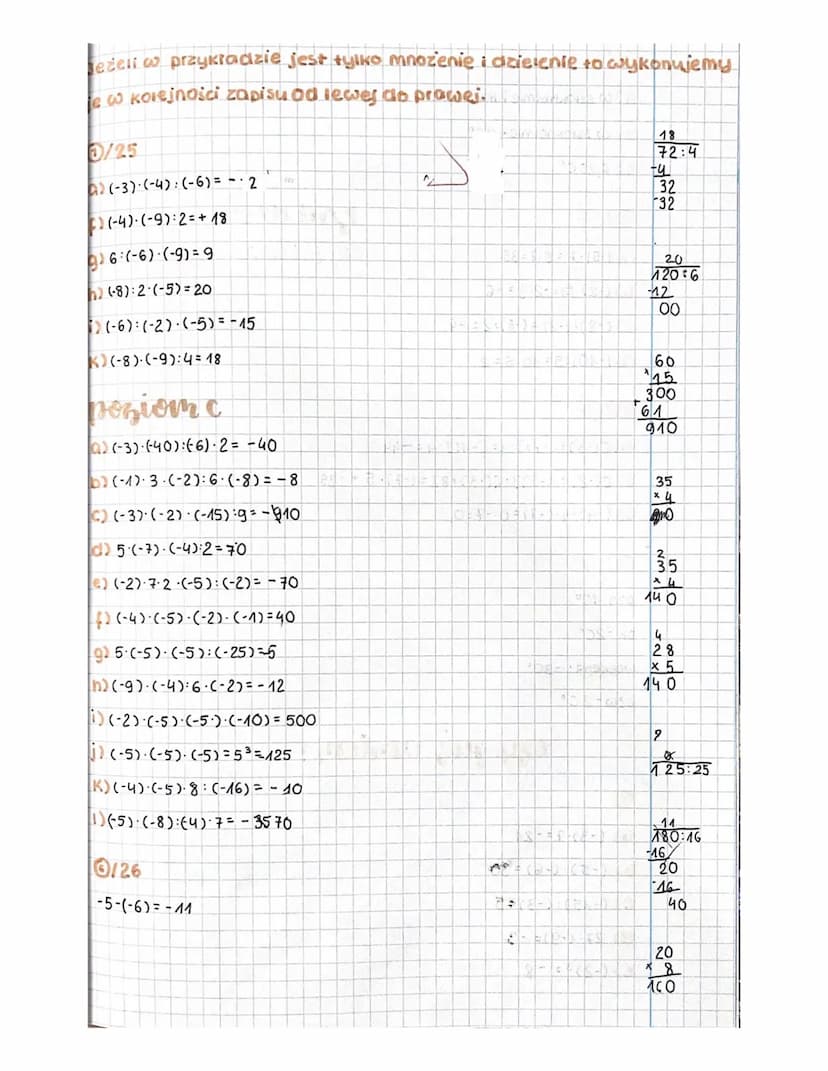 Jeżeli w przykładzie jest tylko mnożenie i dzielenie to wykonujemy
je w kolejności zapisu od lewej do prawej.
①/25
a) (-3)·(-4):(-6)= -·2
f) (-4)·(-9):2=+18
g) 6:(-6)·(-9)=9
h) (-8):2·(-5)=20
i) (-6):(-2)·(-5)=-15
k) (-8)·(-9):4=18
poziom c
a) (-3)·(-40):(-6)·2= -40
b) (-1)·3·(-2):6·(-8)= -8
c) (-3)·(-2)·(-15):9= -910
d) 5·(-7)·(-4):2=70
e) (-2)·7·2·(-5):(-2)= -70
f) (-4)·(-5)·(-2)·(-1)=40
g) 5·(-5)·(-5):(-25)=-5
h) (-9)·(-4):6·(-2)= -12
i) (-2)·(-5)·(-5)·(-10)=500
j) (-5)·(-5)·(-5)=5³=125
k) (-4)·(-5)·8:(-16)= -10
l) (-5)·(-8):(-4)·7= -3570
⑥/26
-5-(-6)= -11
18
72:4
-4
32
-32
20
120:6
-12
00
60
× 15
300
+ 61
910
35
× 4
2
35
× 4
140
4
28
× 5
140
?
125:25
11
180:16
-16
20
-16
40
20
× 8
160